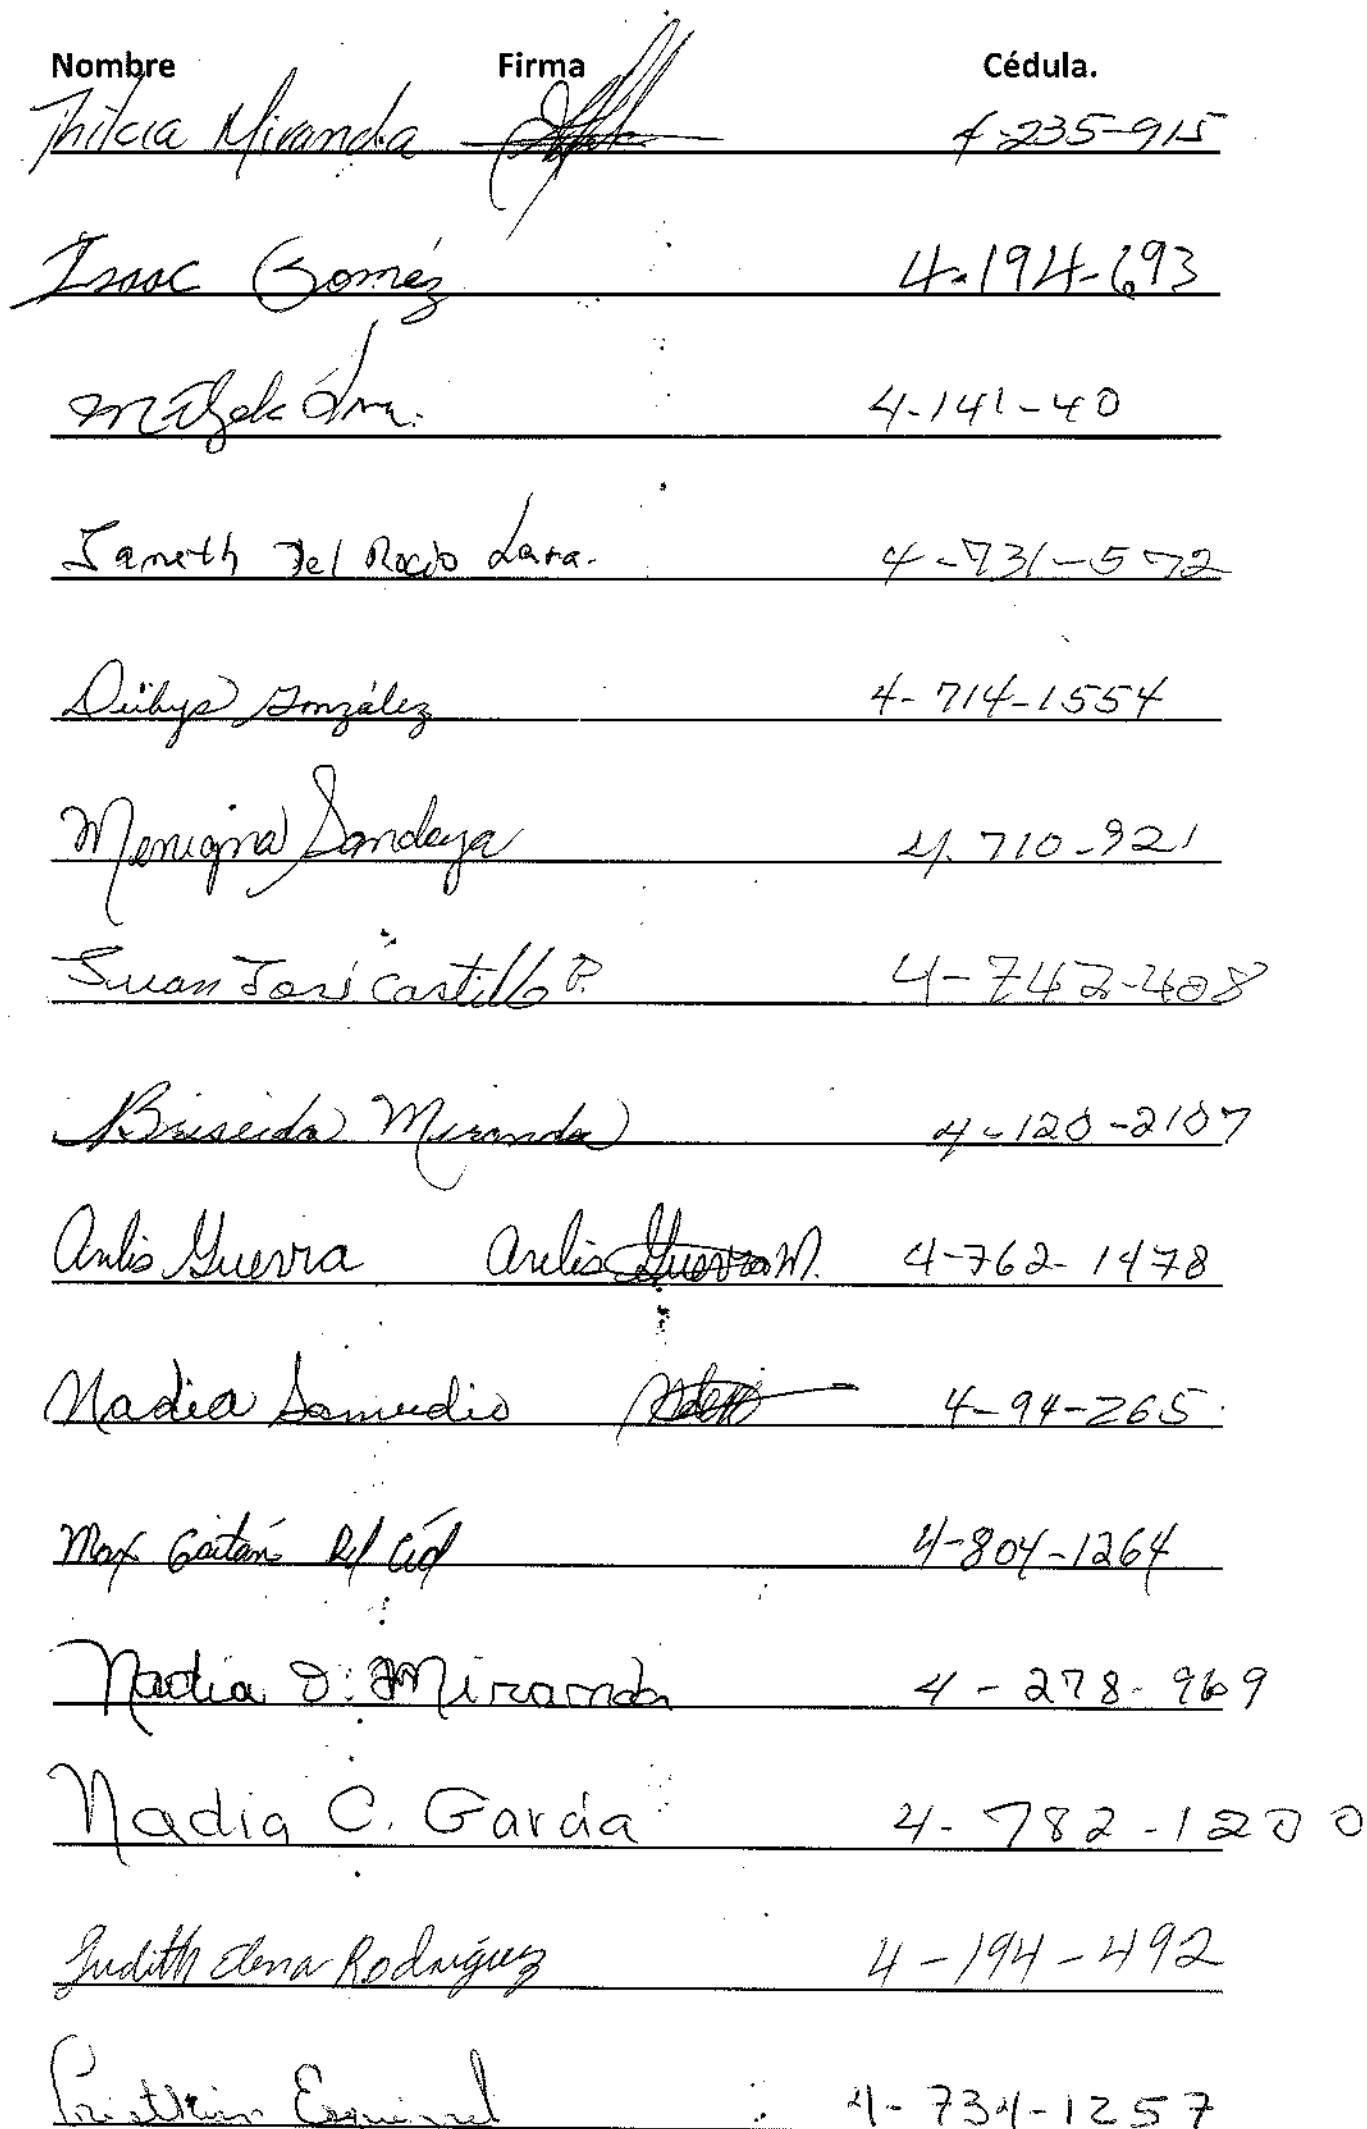 Nombre Firma Cédula.
Thilcia Miranda 4-235-915
Isaac Goméz 4-194-693
4-141-40
Janeth Del Rocío Lara. 4-731-572
González 4-714-1554
4-710-921
Juan José Castillo P. 4-742-408
Briseida Miranda 4-120-2107
Arelis Guerra Arelis Guerra M. 4-762-1478
Nadia Samudio 4-94-265
Max Gaitán Del Cid 4-804-1264
Nadia D. Miranda 4-278-969
Nadia C. García 4-782-1200
Judith Elena Rodríguez 4-194-492
Esquivel 4-734-1257